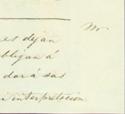 es dejan
obligan á
dará sus
interpretacion